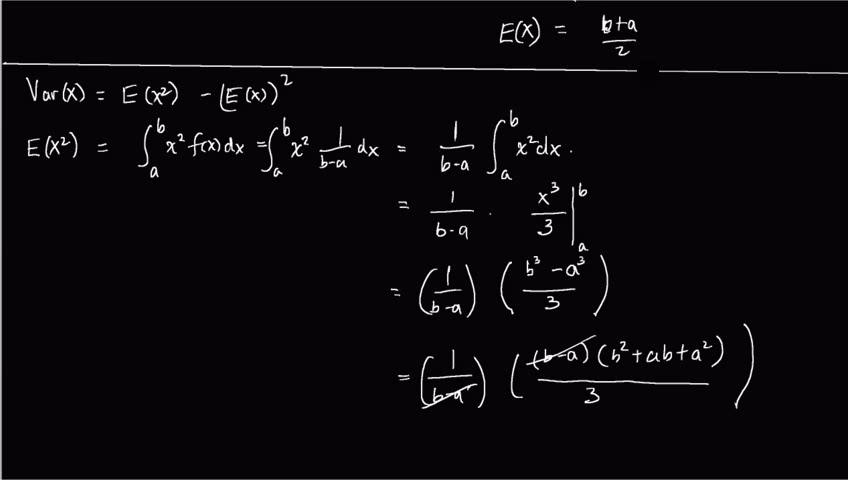 E(X) = b+a/2
Var(x) = E(x²) - (E(x))²
E(X²) = ∫_a^b x² f(x) dx = ∫_a^b x² 1/(b-a) dx = 1/(b-a) ∫_a^b x² dx.
= 1/(b-a) · x³/3 |_a^b
= (1/(b-a)) ((b³ - a³)/3)
= (1/(b-a)) ((b-a)(b² + ab + a²)/3)